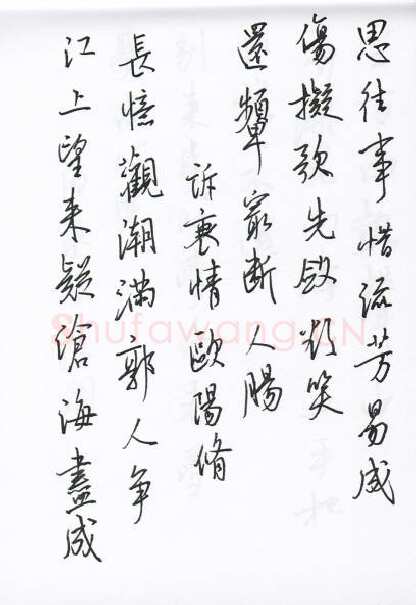 思往事惜流芳易成
傷擬歌先斂欲笑
還顰最斷人腸
訴衷情歐陽脩
長憶觀潮滿郭人爭
江上望来疑滄海盡成
Shufawang.CN